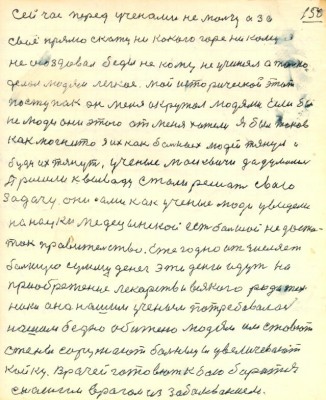 158
Сей час перед учеными не молчу а за
своё прямо скажу ни какого горе ни кому
не создавал беды не кому не учинял а только
делал людям легкое. Мой исторической этот
поступок он меня окружал людями если бы
не люди они этого от меня хотели я был таков
как магнито я их как больных людей тянул и
буду их тянуть, ученые Москвичи додумались
Пришли к выводу стали решать свою
задачу. они сами как ученые люди увидели
на науки медецынской ест большой не доста-
ток правительство. Ежегодно отчисляет
большую сумму денег эти деньги идут на
приобретение лекарств и всякого рода тех
ники она нашим ученым потребовалас
нашим бедно обижено людям им становит
стены сооружают больницы увеличевают
койку. Врачей готовют к бою боротся
с налогим врагом из заболеванием.